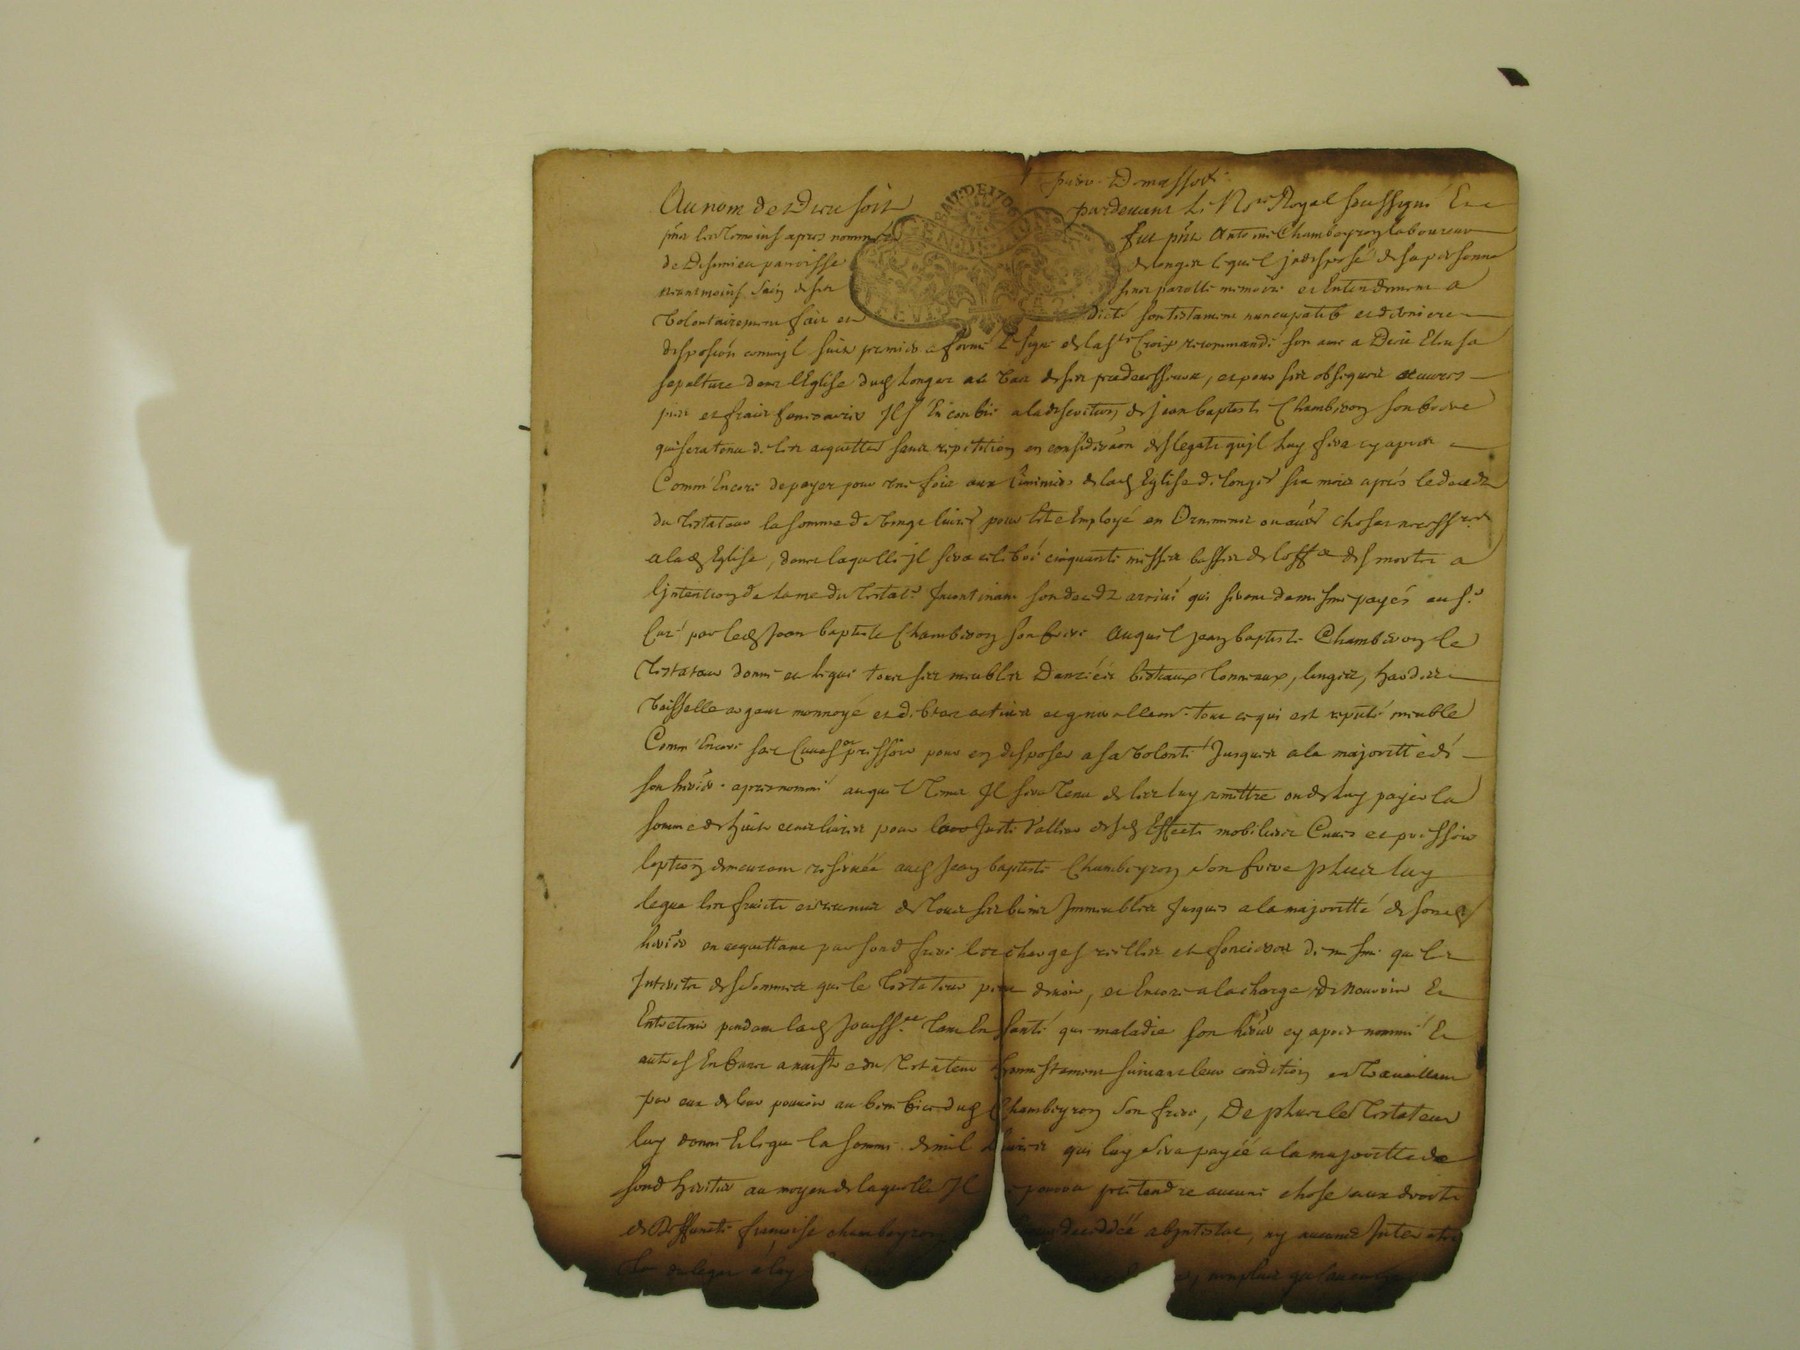 Au nom de Dieu soit pardevant Le No.re Royal soussigné Et
pñs les Temoins apres nommés fut pñt Antoine Chambeyron laboureur
de Disimieu parroisse de Longes lequel jndisposé de sa personne
neantmoins sain de ses sens parolle memoire et Entendement a
Volontairement fait et dicté son testament nuncupatif et derniere
disposi͠on comm'jl suit premier a formé Le signe de la s.te Croix recommandé son ame a Dieu Elu sa
sepulture dans l'Eglise dud Longes au Vas de ses predecesseurs, et pour ses obseques œuvres
pies et fraix funeraires Il s'En confie a la discretion de jean baptiste Chambeyron son frere
qui sera tenu de les acquitter sans repetition en considera͠on des legats qu'jl Luy fera cy apres
Comm'Encore de payer pour une fois aux Luminiers de lad Eglise de Longes six mois après le decedz
du Testateur la somme de Vingt livres pour Estre Employé en Ornemens ou autres choses necess.res
a lad Eglise, dans laquelle jl sera celebré cinquante messes basses de l'off.ce des morts a
l'jntention de l'ame du Testat.r Incontinant son decedz arrivé qui seront de mesme payés au s.r
Curé par led Jean baptiste Chambeyron son frere auquel jean baptiste Chambeyron le
Testateur donne et legue tous ses meubles Danrées bestiaux Tonneaux, linges, hardes
Vaisselle argent monnoyé et debtes actives et generallem.t tout ce qui est reputé meuble
Comm'Encore ses Cuves et pressoir pour en disposer a sa Volonté Jusques a la majorité de
son heritier apres nommé auquel Temps Il sera Tenu de les luy remettre ou de luy payer la
somme de huit cent livres pour leur juste Valleur desd Effects mobiliers Cuves et pressoir
l'option demeurant reservée aud Jean baptiste Chambeyron son frere plus luy
legue les fruits et revenus de tous ses biens Immeubles Jusques a la majorité de sond
heritier en acquittant par sond frere les charges reelles et foncieres de mesme que les
Interets des sommes que le Testateur peut devoir, et Encore a la charge de Nourrir Et
Entretenir pendant lad Jouiss.ce tant En santé que maladie son heritier cy apres nommé Et
autres Enfans a naistre du Testateur honnestement suivant leur condition en Travaillant
par eux de leur pouvoir au benefice dud Chambeyron son frere, De plus le Testateur
luy donne Et legue la somme de mil livres qui luy sera payée a la majorité de
sond heritier au moyen de laquelle Il pourra pretendre aucune chose aux droits
de Deffuncte françoise chambeyron decedée abjntestat, ny aucuns Interets
du legat a luy non plus